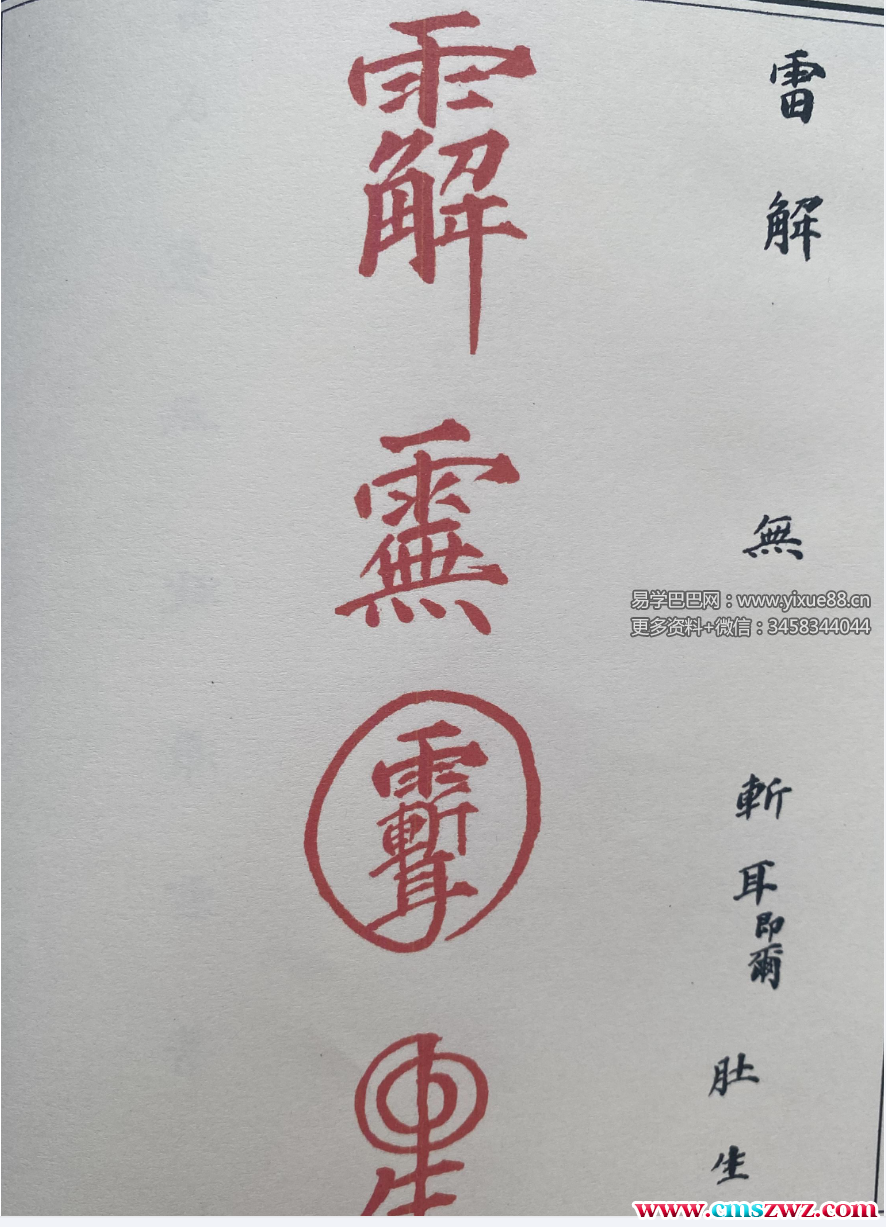 雷
解
無
斬
耳
即爾
肚
生
易学巴巴网：www.yixue88.cn
更多资料+微信：3458344044
www.cmszwz.com